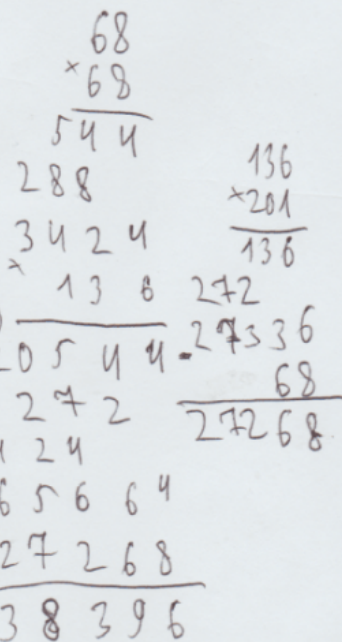 68
× 68
544
288
3424
× 136
0544
272
24
65664
27268
38396
136
× 201
136
272
- 27336
68
27268